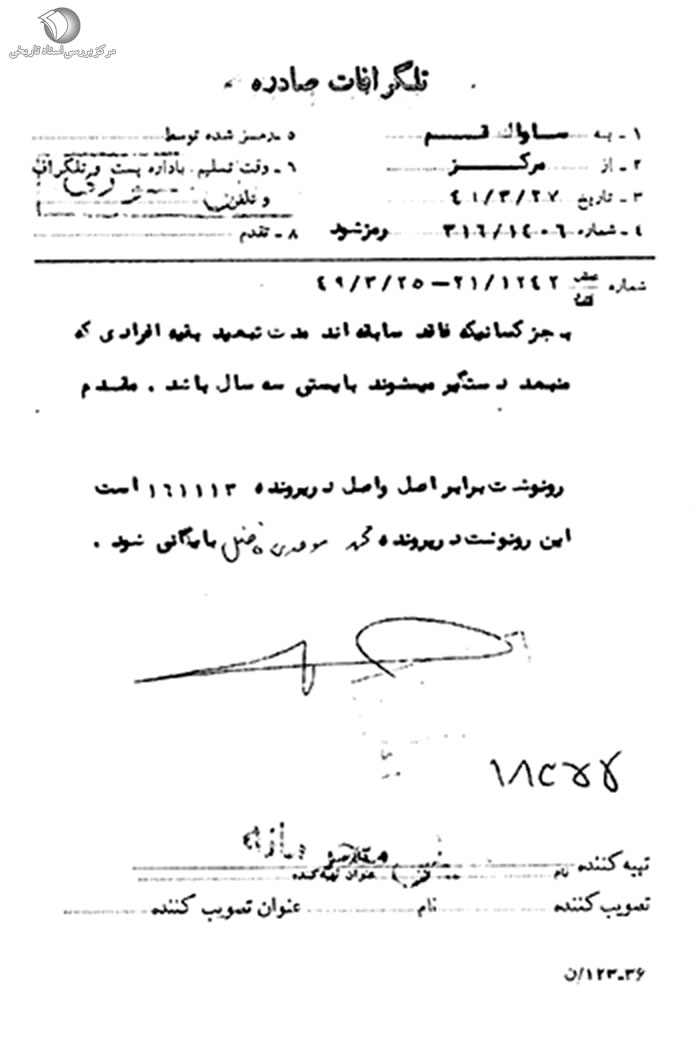 مرکز بررسی اسناد تاریخی
تلگرافات صادره
۱ ـ به ساواک قم
۲ ـ از مرکز
۳ ـ تاریخ ۴۱/۳/۲۷
۴ ـ شماره ۳۱۶/۱۴۰۶ رمز شود
۵ ـ رمز شده توسط
۶ ـ وقت تسلیم باداره پست و تلگراف
و تلفن
۸ ـ تقدم
شماره ۲۱/۱۲۴۲ - ۴۹/۳/۲۵
بجز کسانیکه فاقد سابقه اند مدت تبعید بقیه افرادی که
منبعد دستگیر میشوند بایستی سه سال باشد . مقدم
رونوشت برابر اصل واصل در پرونده ۱۶۱۱۱۳ است
این رونوشت در پرونده محمد موحدی فاضل بایگانی شود .
تهیه کننده نام عنوان تهیه کننده
تصویب کننده نام عنوان تصویب کننده
۳۶-۱۲۳/ن